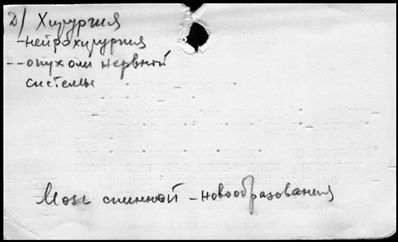 Д/ Хирургия
-нейрохирургия
--опухоли нервной
системы
Мозг спинной -новообразования